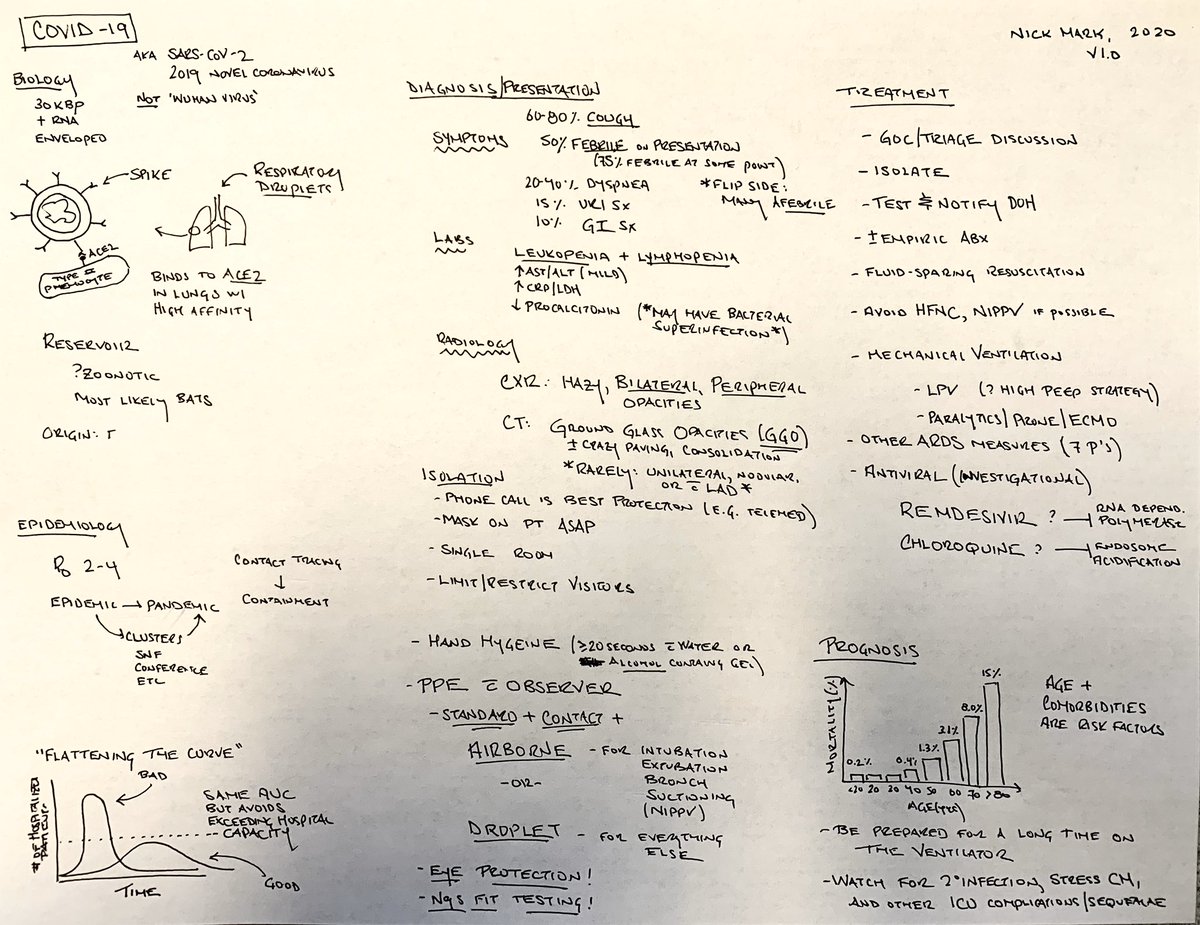 COVID-19
AKA SARS-COV-2
2019 NOVEL CORONAVIRUS
NOT "WUHAN VIRUS"
NICK MARK, 2020
V1.0
BIOLOGY
30 KBP
+ RNA
ENVELOPED
SPIKE
RESPIRATORY
DROPLETS
ACE2
TYPE II
PNEUMOCYTE
BINDS TO ACE2
IN LUNGS W/
HIGH AFFINITY
RESERVOIR
?ZOONOTIC
MOST LIKELY BATS
ORIGIN:
EPIDEMIOLOGY
R0 2-4
EPIDEMIC → PANDEMIC
CLUSTERS
SNF
CONFERENCE
ETC
CONTACT TRACING
↓
CONTAINMENT
"FLATTENING THE CURVE"
BAD
# OF HOSPITALIZED
PATIENTS
SAME AUC
BUT AVOIDS
EXCEEDING HOSPITAL
CAPACITY
TIME
GOOD
DIAGNOSIS/PRESENTATION
60-80% COUGH
SYMPTOMS
50% FEBRILE ON PRESENTATION
(75% FEBRILE AT SOME POINT)
20-40% DYSPNEA
15% URI SX
10% GI SX
*FLIP SIDE:
MANY AFEBRILE
LABS
LEUKOPENIA + LYMPHOPENIA
↑AST/ALT (MILD)
↑CRP/LDH
↓ PROCALCITONIN (*MAY HAVE BACTERIAL
SUPERINFECTION*)
RADIOLOGY
CXR: HAZY, BILATERAL, PERIPHERAL
OPACITIES
CT: GROUND GLASS OPACITIES (GGO)
± CRAZY PAVING, CONSOLIDATION
*RARELY: UNILATERAL, NODULAR,
OR c̄ LAD*
ISOLATION
- PHONE CALL IS BEST PROTECTION (E.G. TELEMED)
- MASK ON PT ASAP
- SINGLE ROOM
- LIMIT/RESTRICT VISITORS
- HAND HYGEINE (≥20 SECONDS c̄ WATER OR
ALCOHOL CONTAING GEL)
- PPE c̄ OBSERVER
- STANDARD + CONTACT +
AIRBORNE - FOR INTUBATION
EXTUBATION
BRONCH
SUCTIONING
(NIPPV)
-OR-
DROPLET - FOR EVERYTHING
ELSE
- EYE PROTECTION!
- N95 FIT TESTING!
TREATMENT
- GOC/TRIAGE DISCUSSION
- ISOLATE
- TEST & NOTIFY DOH
- ± EMPIRIC ABX
- FLUID-SPARING RESUSCITATION
- AVOID HFNC, NIPPV IF POSSIBLE
- MECHANICAL VENTILATION
- LPV (? HIGH PEEP STRATEGY)
- PARALYTICS/PRONE/ECMO
- OTHER ARDS MEASURES (7 P'S)
- ANTIVIRAL (INVESTIGATIONAL)
REMDESIVIR ? ⊣ RNA DEPEND.
POLYMERASE
CHLOROQUINE ? ⊣ ENDOSOME
ACIDIFICATION
PROGNOSIS
MORTALITY (%)
0.2% 0.4% 1.3% 3.1% 8.0% 15%
<20 20 30 40 50 60 70 >80
AGE (YRS)
AGE +
COMORBIDITIES
ARE RISK FACTORS
- BE PREPARED FOR A LONG TIME ON
THE VENTILATOR
- WATCH FOR 2° INFECTION, STRESS CM,
AND OTHER ICU COMPLICATIONS/SEQUELAE